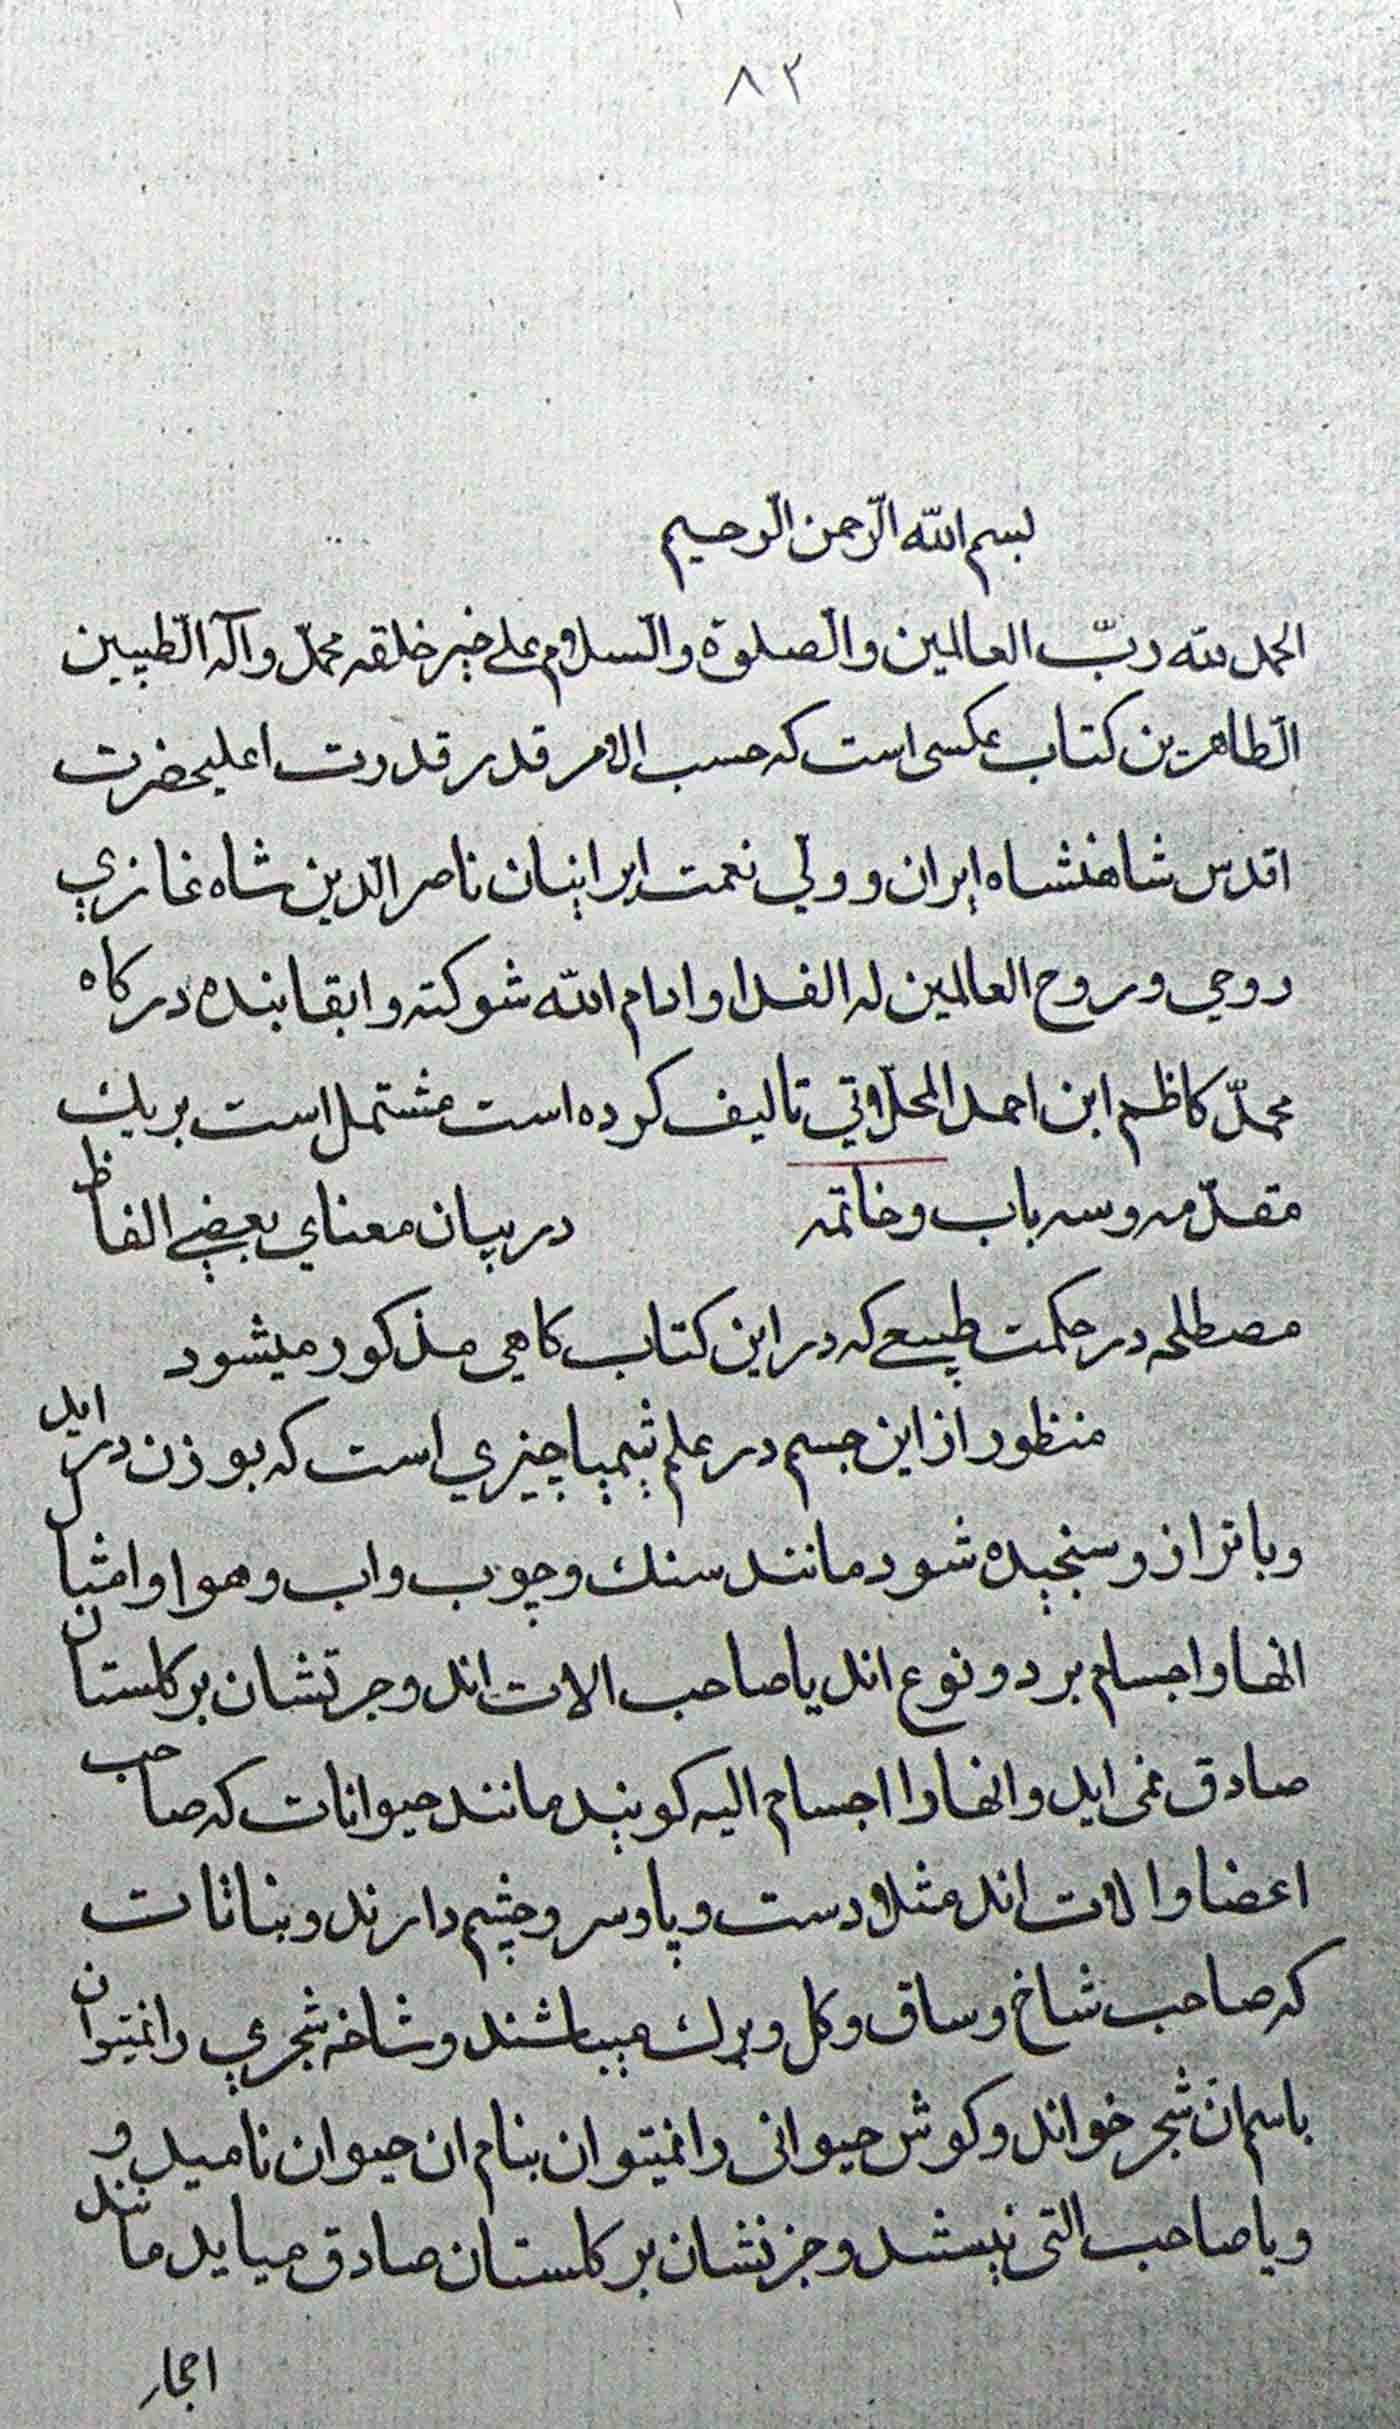 ۸۲
بسم الله الرّحمن الرّحیم
الحمد لله ربّ العالمین والصّلوة والسّلام علی خیر خلقه محمّد وآله الطّیبین
الطّاهرین کتاب عکسی است که حسب الامر قدر قدرت اعلیحضرت
اقدس شاهنشاه ایران و ولی نعمت ایرانیان ناصر الدّین شاه غازی
روحی و روح العالمین له الفدا و ادام الله شوکته و ابقا بنده درکاه
محمّد کاظم ابن احمد المحلّاتی تالیف کرده است مشتمل است بر یك
مقدّمه و سه باب و خاتمه در بیان معنای بعضی الفاظ
مصطلحه در حکمت طبیعی که در این کتاب کاهی مذکور میشود
منظور از این جسم در علم شیمیا چیزی است که بوزن در اید
و با ترازو سنجیده شود مانند سنك و چوب و اب و هوا و امثال
انها و اجسام بر دو نوع اند یا صاحب الات اند و جزئشان بر کلستان
صادق نمی اید و انها را اجسام الیه کویند مانند حیوانات که صاحب
اعضا و الات اند مثلا دست و پا و سر و چشم دارند و نباتات
که صاحب شاخ و ساق و کل و برك میباشند و شاخه شجری را نمیتوان
باسم ان شجر خواند و کوش حیوانی را نمیتوان بنام ان حیوان نامید و
و یا صاحب التی نیستند و جزئشان بر کلستان صادق میاید مانند
احجار